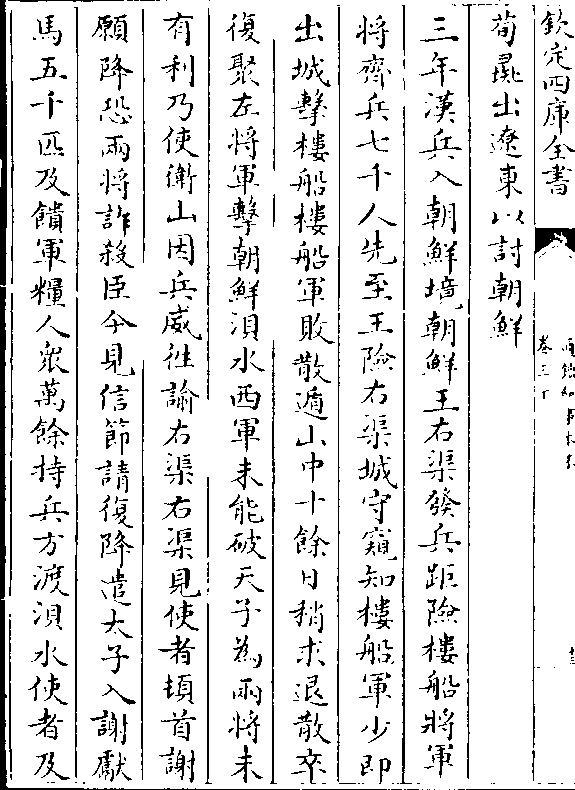 欽定四庫全書
卷三下
荀彘出遼東以討朝鮮
三年漢兵入朝鮮境朝鮮王右渠發兵距險樓船將軍
將齊兵七千人先至王險右渠城守窺知樓船軍少即
出城擊樓船樓船軍敗散遁山中十餘日稍求退散卒
復聚左將軍擊朝鮮浿水西軍未能破天子為兩將未
有利乃使衛山因兵威往諭右渠右渠見使者頓首謝
願降恐兩將詐殺臣今見信節請復降遣太子入謝獻
馬五千匹及饋軍糧人衆萬餘持兵方渡浿水使者及